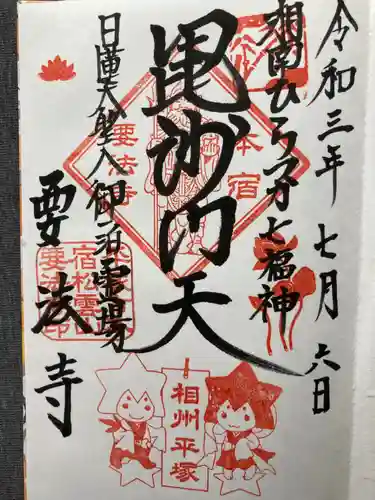 令和三年七月六日
湘南ひらつか七福神
毘沙門天
日蓮大聖人御方霊場
要法寺
本宿
要法寺
相州平塚